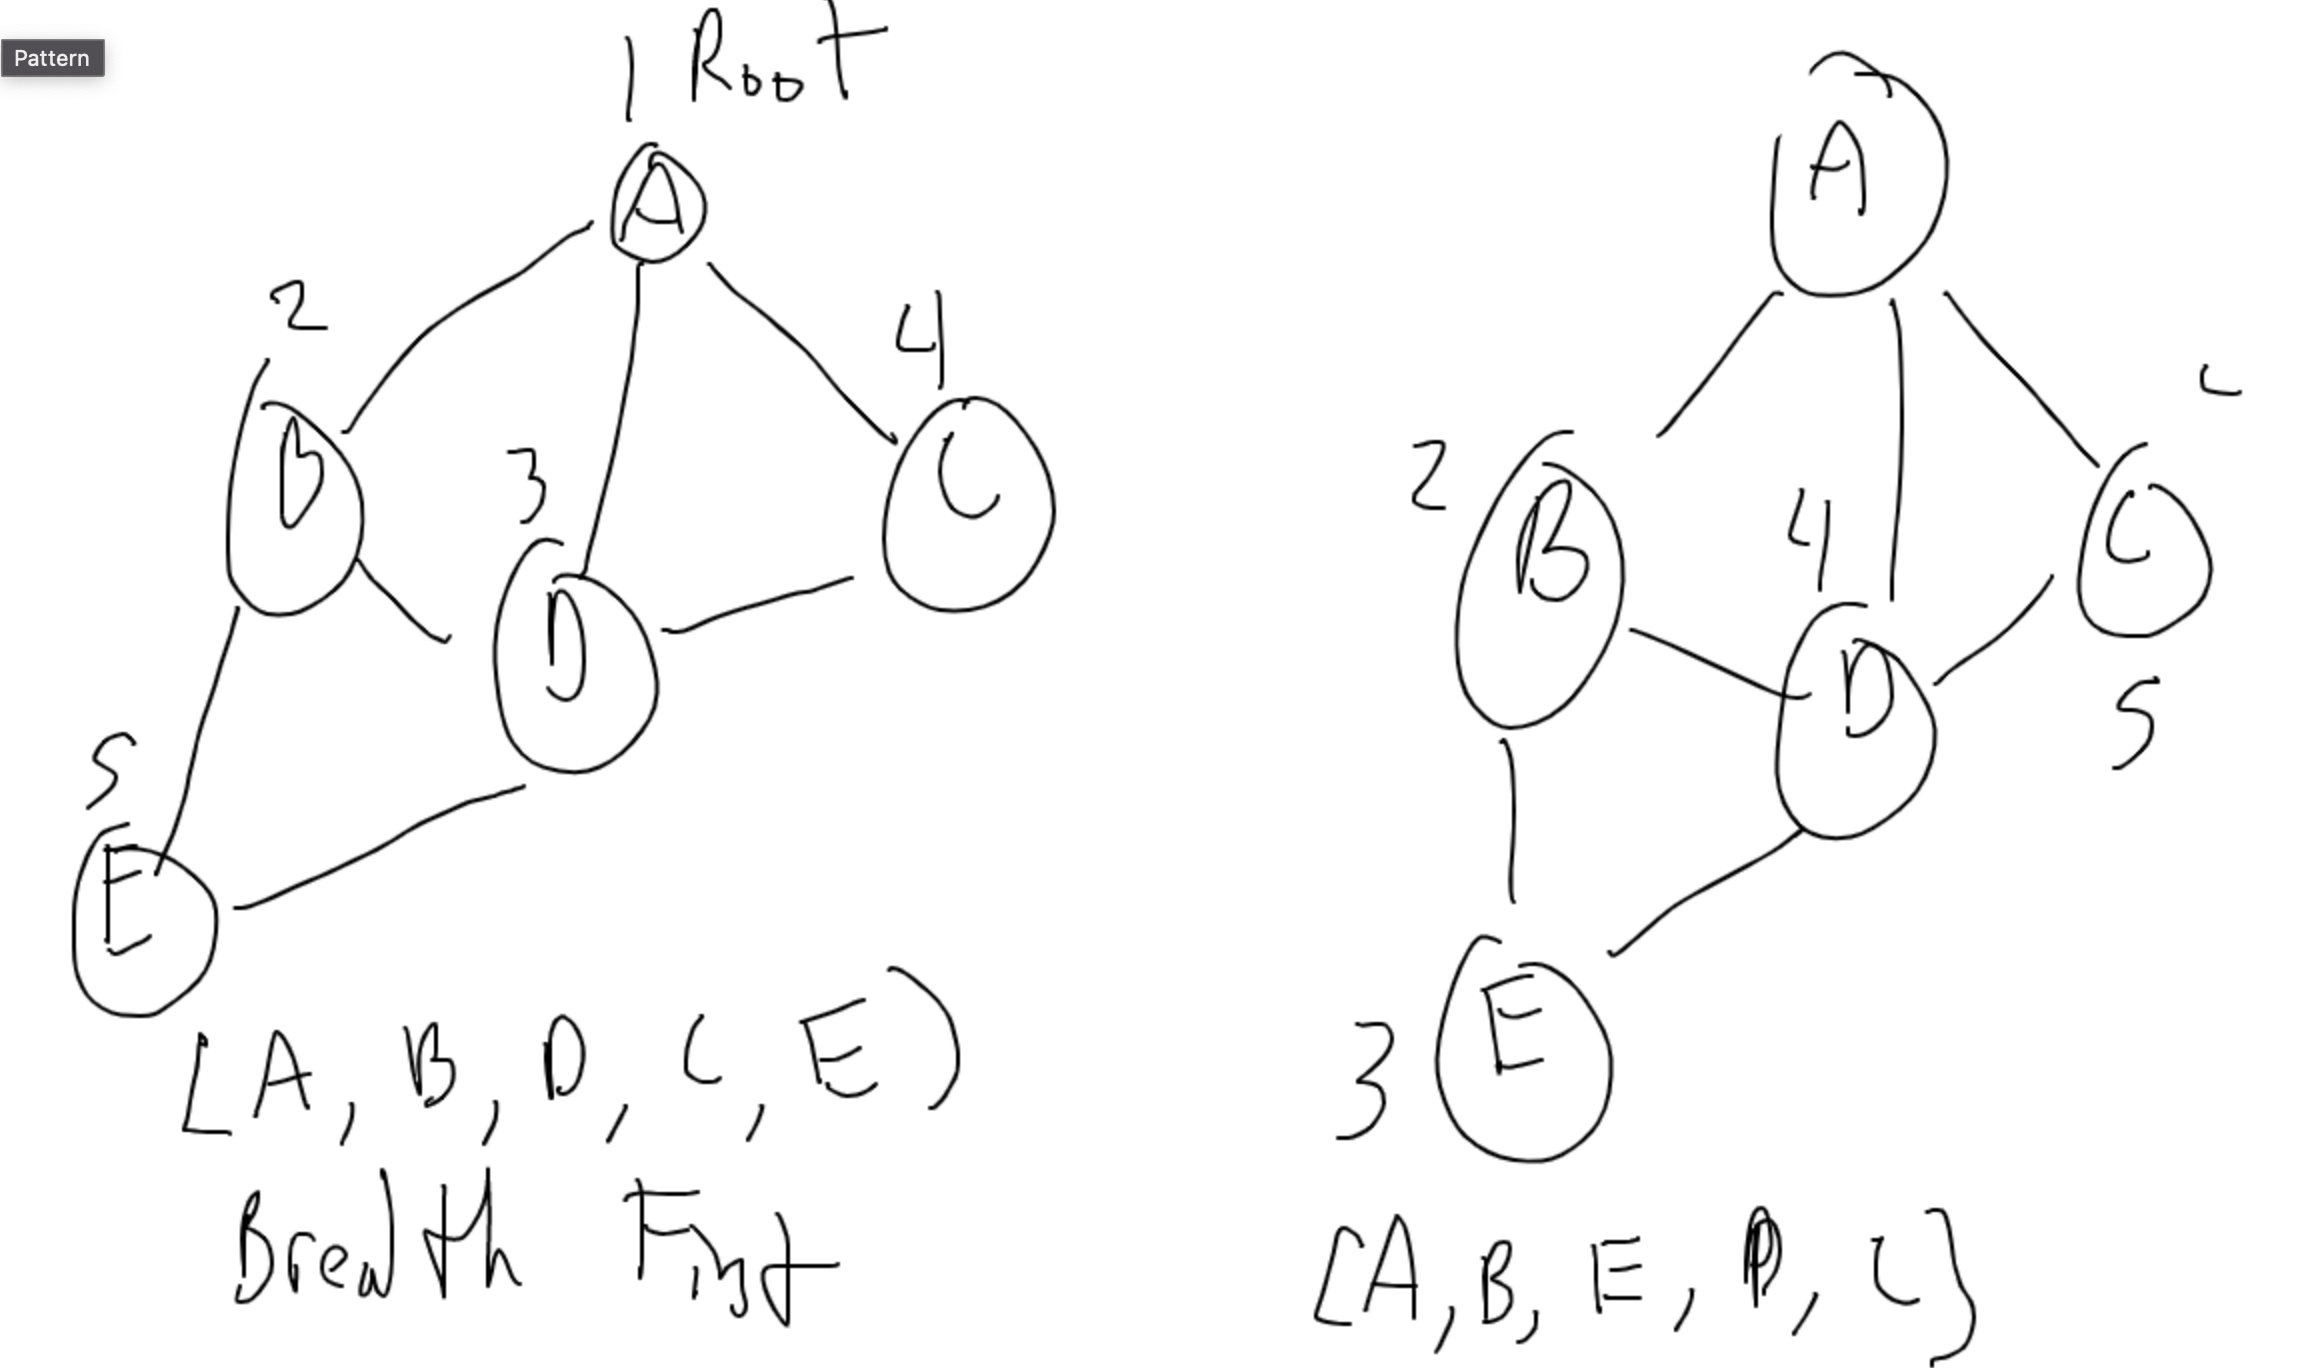 Pattern
1 Root
A
2
B
3
D
4
C
5
E
[A, B, D, C, E)
Breadth First
A
2
B
4
D
C
5
3
E
[A, B, E, D, C]